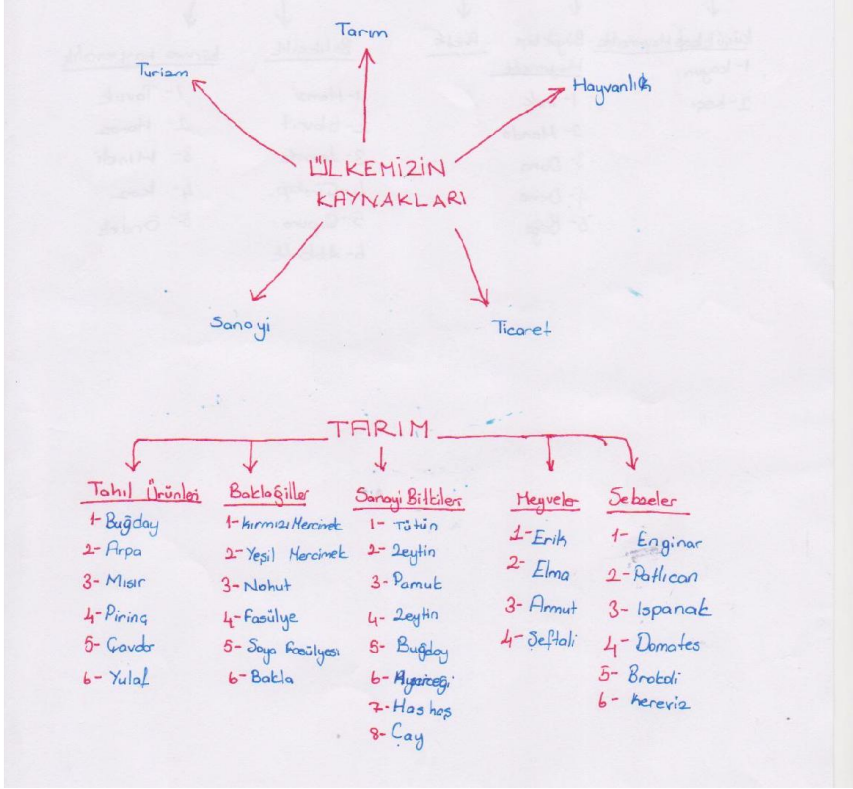 Tarım
Turizm
Hayvanlık
ÜLKEMİZİN
KAYNAKLARI
Sanayi
Ticaret
TARIM
Tahıl Ürünleri
1- Buğday
2- Arpa
3- Mısır
4- Pirinç
5- Çavdar
6- Yulaf
Baklağiller
1- Kırmızı Mercimek
2- Yeşil Mercimek
3- Nohut
4- Fasülye
5- Soya Fasülyesi
6- Bakla
Sanayi Bitkileri
1- Tütün
2- Zeytin
3- Pamuk
4- Zeytin
5- Buğday
6- Ayçiçeği
7- Haşhaş
8- Çay
Meyveler
1- Erik
2- Elma
3- Armut
4- Şeftali
Sebzeler
1- Enginar
2- Patlıcan
3- Ispanak
4- Domates
5- Brokoli
6- Kereviz